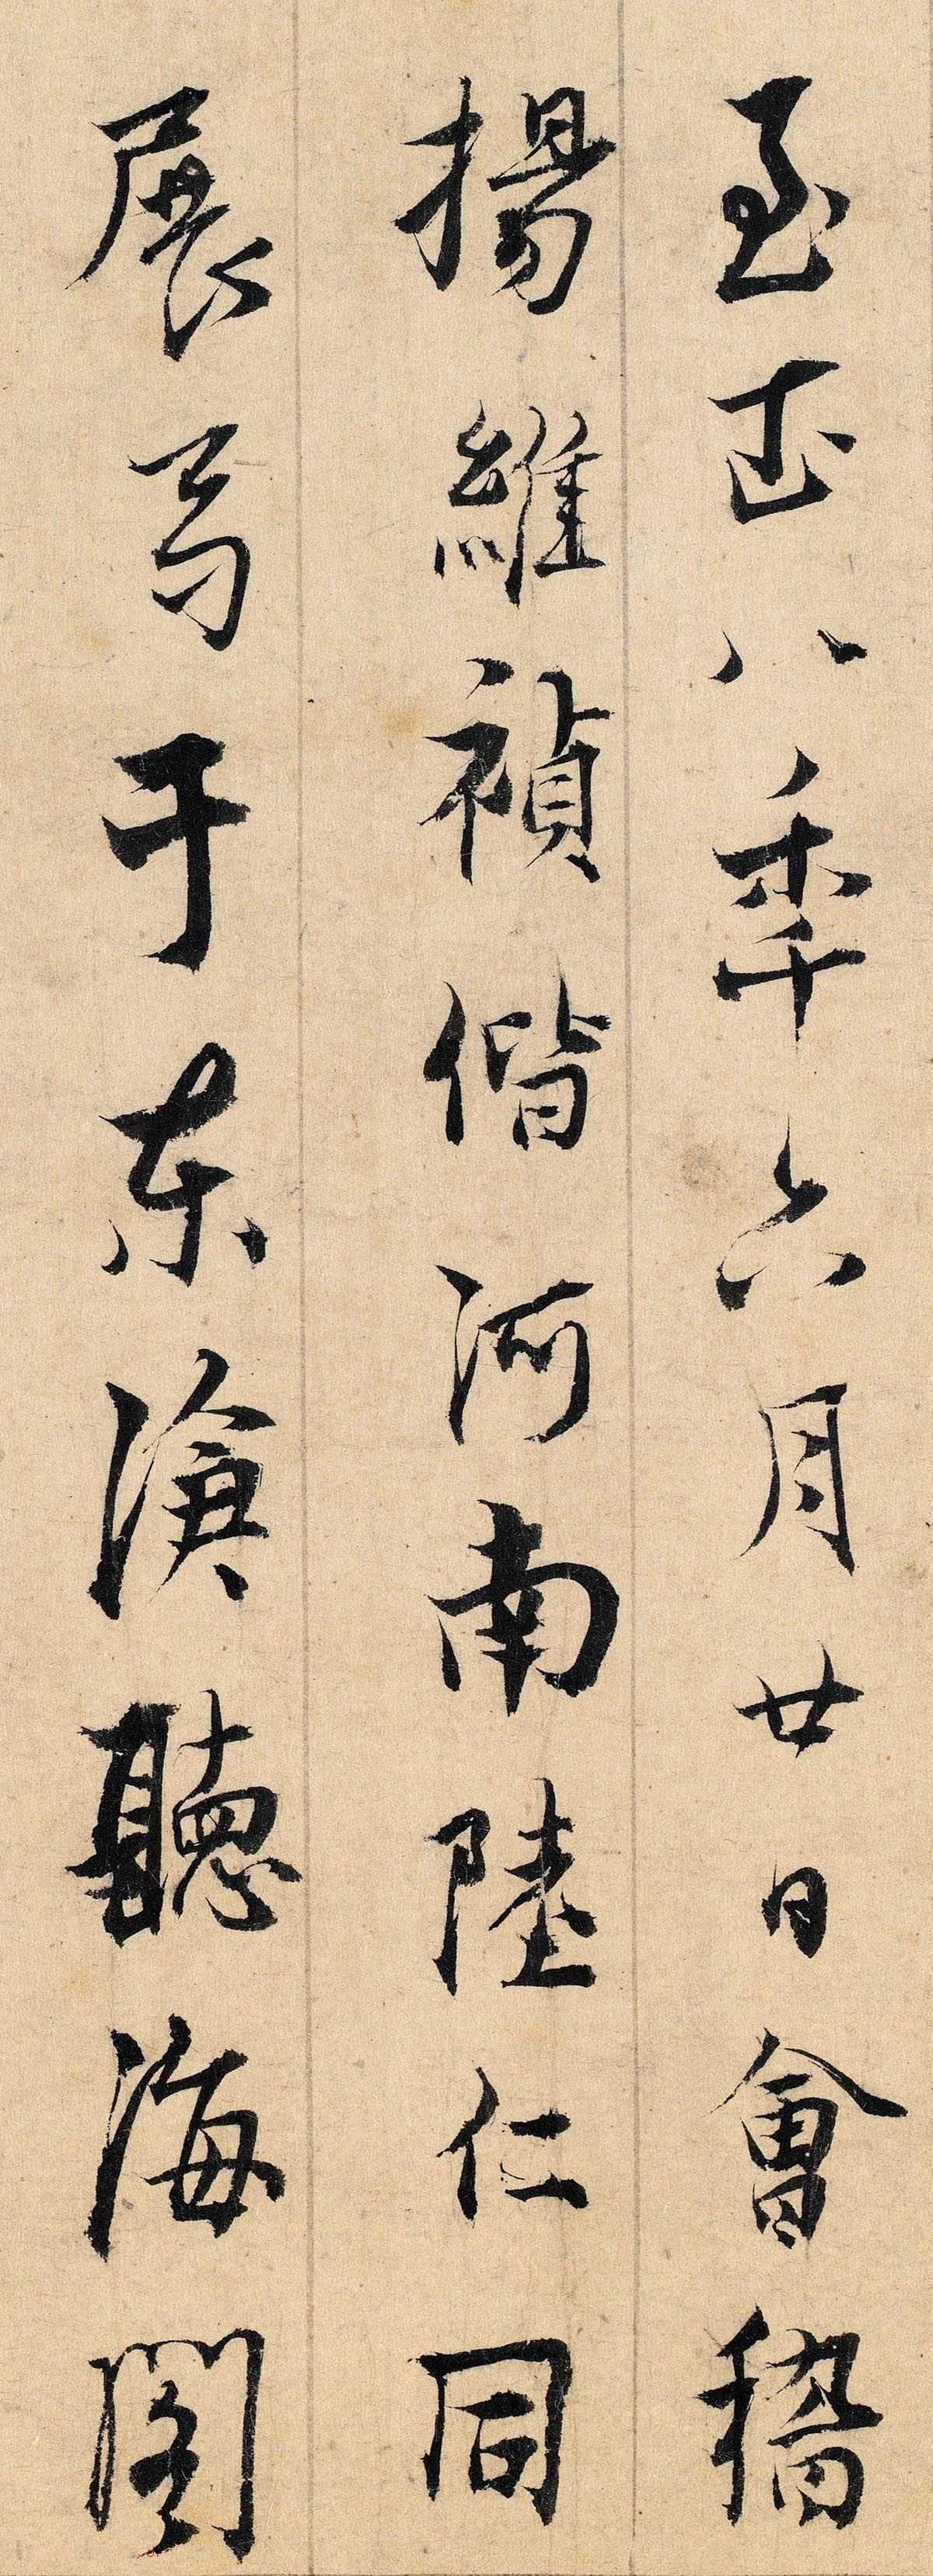 至正八秊六月廿日會稽
揚維禎偕河南陸仁同
展弓于东滄聽海閣